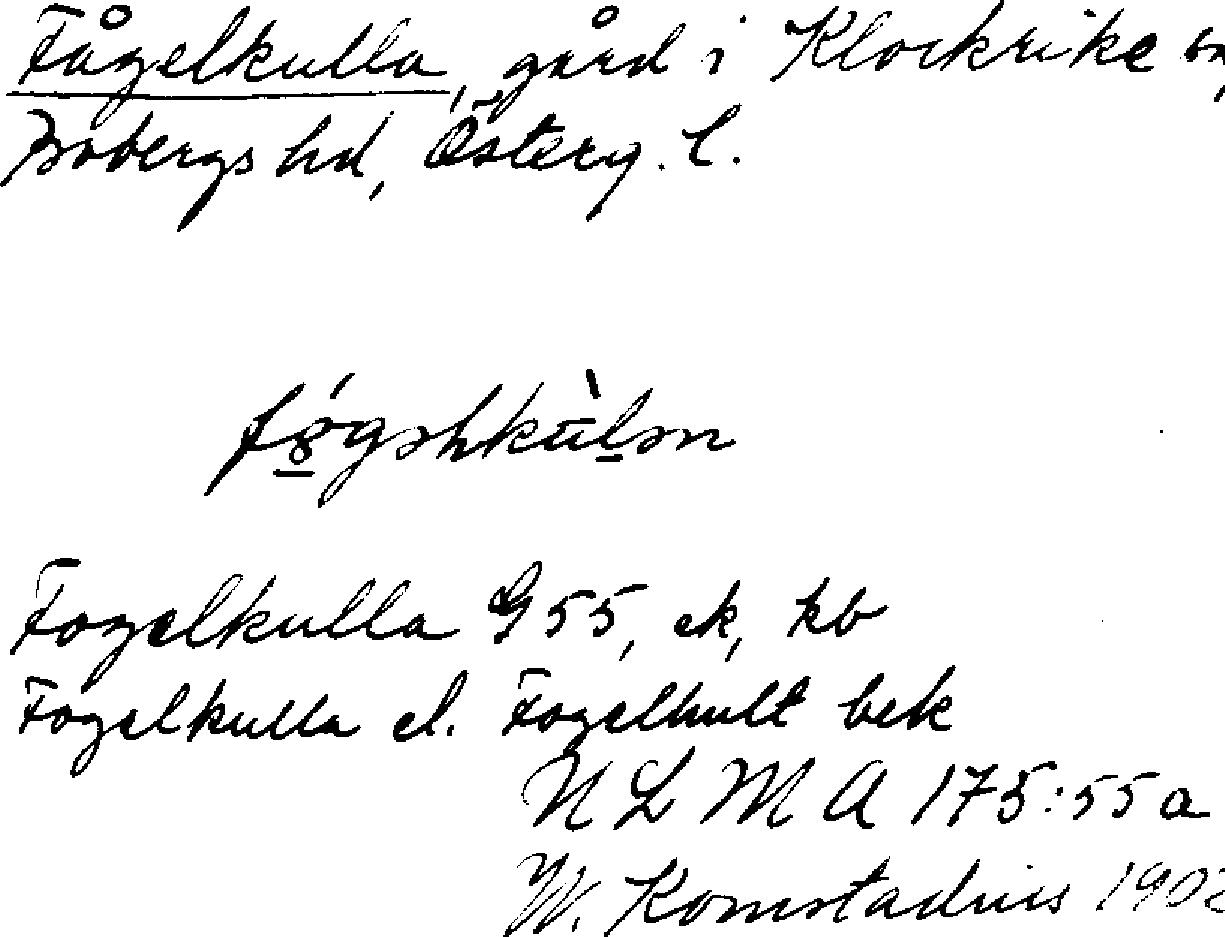 Fågelkulla, gård i Klockrike sn,
Bobergs hd, Österg. l.
Fogelkulla G 55, ek, kb
Fogelkulla el. Fogelhult bek
N L M A 175:55 a
W. Komstadius 1902